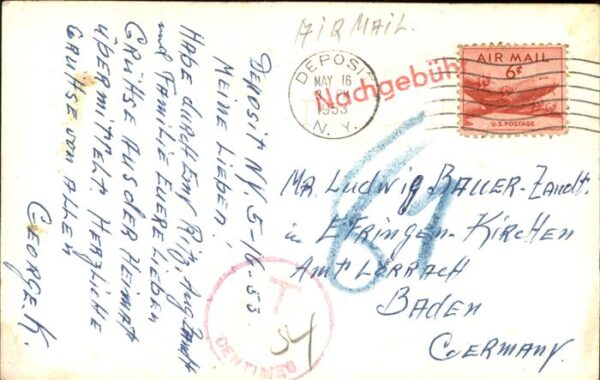 AIR MAIL.
DEPOSIT
MAY 16
PM
1953
N.Y.
Nachgebühr
AIR MAIL
6¢
U.S. POSTAGE
Deposit NY. 5-16-53.
Meine Lieben!
Habe durch Ritz, Aug. Zandt
und Familie Euere Lieben
Grühse aus der Heimat
übermittelt. Herzliche
Grühse von Allen
George K.
Mr. Ludwig Bauer-Zandt.
in Efringen-Kirchen
Amt Lörrach
Baden
Germany.
T
CENTIMES
54